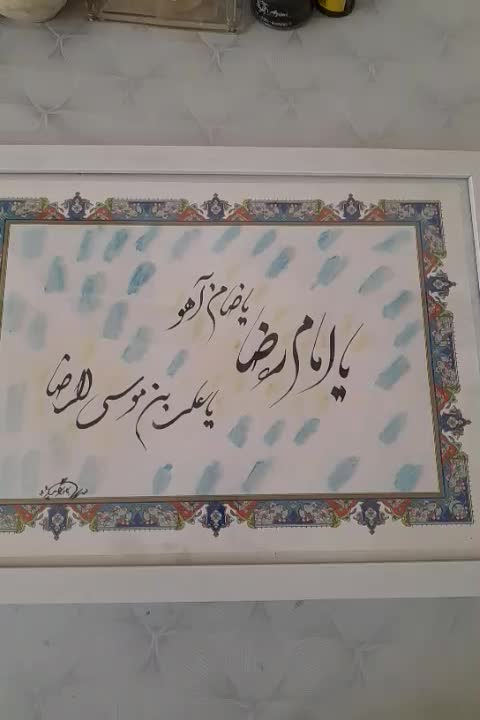 یا ضامن آهو
یا امام رضا
یا علی بن موسی الرضا